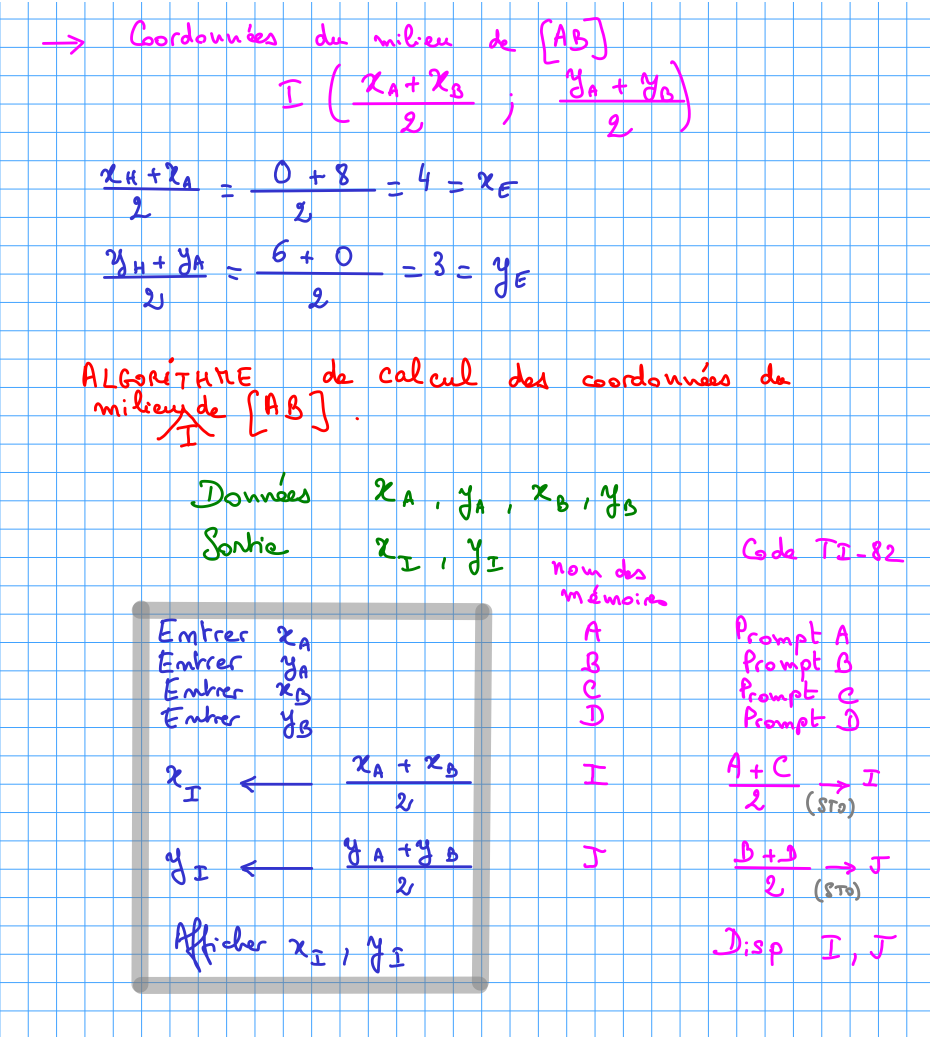 → Coordonnées du milieu de [AB]
I ( (x_A + x_B)/2 ; (y_A + y_B)/2 )
(x_H + x_A)/2 = (0 + 8)/2 = 4 = x_E
(y_H + y_A)/2 = (6 + 0)/2 = 3 = y_E
ALGORITHME de calcul des coordonnées du
milieu I de [AB].
Données x_A, y_A, x_B, y_B
Sortie x_I, y_I
nom des mémoires
Code TI-82
Entrer x_A A Prompt A
Entrer y_A B Prompt B
Entrer x_B C Prompt C
Entrer y_B D Prompt D
x_I ← (x_A + x_B)/2 I (A + C)/2 → (STO) I
y_I ← (y_A + y_B)/2 J (B + D)/2 → (STO) J
Afficher x_I, y_I Disp I, J